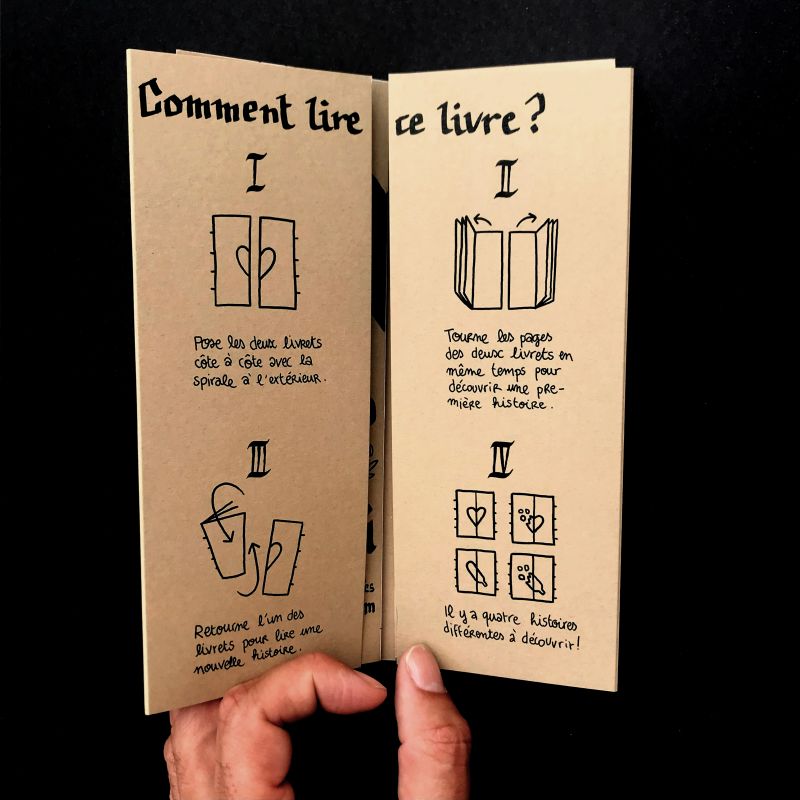 Comment lire ce livre ?
I
Pose les deux livrets
côte à côte avec la
spirale à l'extérieur.
II
Tourne les pages
des deux livrets en
même temps pour
découvrir une pre-
mière histoire.
III
Retourne l'un des
livrets pour lire une
nouvelle histoire.
IV
Il y a quatre histoires
différentes à découvrir!